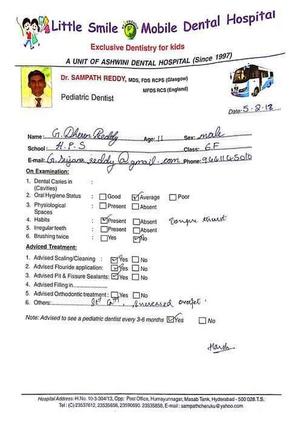 Little Smile Mobile Dental Hospital
Exclusive Dentistry for kids
A UNIT OF ASHWINI DENTAL HOSPITAL (Since 1997)
Dr. SAMPATH REDDY, MDS, FDS RCPS (Glasgow)
MFDS RCS (England)
Pediatric Dentist
Date: 5.2.18
Name: G. Dheen Reddy Age: 11 Sex: male
School: H.P.S Class: 6F
E-mail: G.Srijana reddy@gmail.com Phone:
On Examination:
1. Dental Caries in (Cavities)
2. Oral Hygiene Status : Good Average Poor
3. Physiological Spaces : Present Absent
4. Habits : Present Absent Tongue thrust
5. Irregular teeth : Present Absent
6. Brushing twice : Yes No
Adviced Treatment:
1. Advised Scaling/Cleaning : Yes No
2. Advised Flouride application: Yes No
3. Advised Pit & Fissure Sealants: Yes No
4. Advised Filling in
5. Advised Orthodontic treatment : Yes No
6. Others: Increased overjet
Note: Advised to see a pediatric dentist every 3-6 months Yes No
Hospital Address: H.No. 10-3-304/13, Opp: Post Office, Humayunnagar, Masab Tank, Hyderabad - 500 028 T.S.
Tel: (C)-23537612, 23535658, 23590693 23535858, E-mail: sampathcheruku@yahoo.com